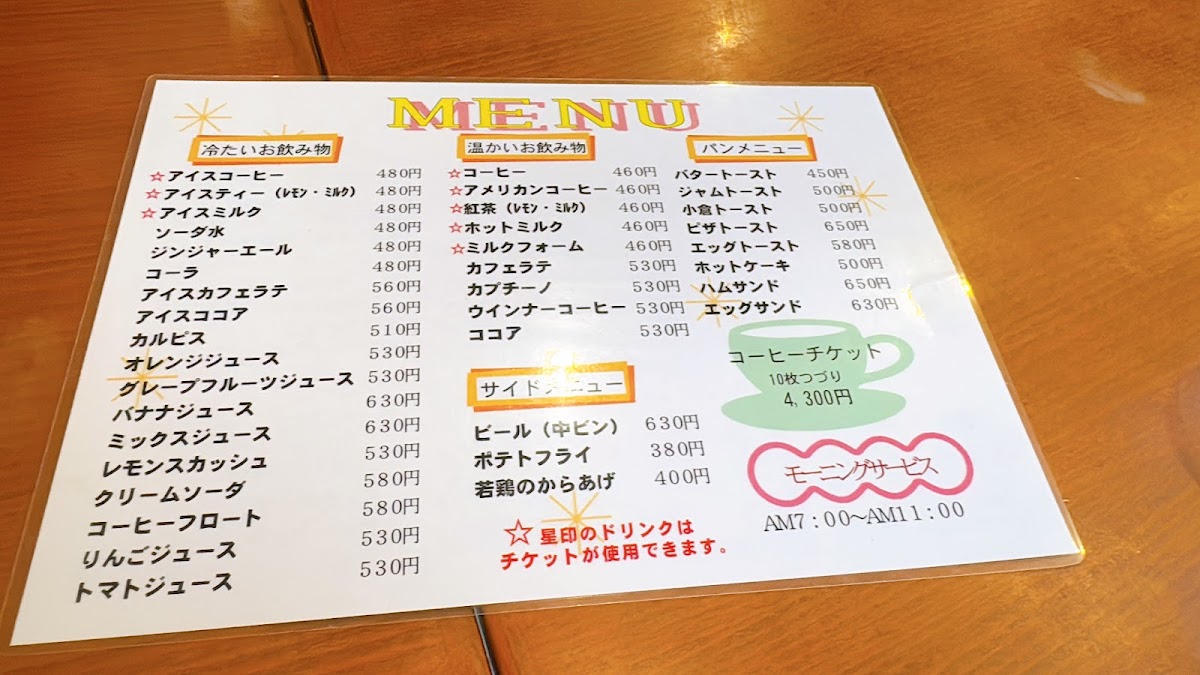 MENU
冷たいお飲み物
☆アイスコーヒー 480円
☆アイスティー（ﾚﾓﾝ・ﾐﾙｸ） 480円
☆アイスミルク 480円
ソーダ水 480円
ジンジャーエール 480円
コーラ 480円
アイスカフェラテ 560円
アイスココア 560円
カルピス 510円
オレンジジュース 530円
グレープフルーツジュース 530円
バナナジュース 630円
ミックスジュース 630円
レモンスカッシュ 530円
クリームソーダ 580円
コーヒーフロート 580円
りんごジュース 530円
トマトジュース 530円
温かいお飲み物
☆コーヒー 460円
☆アメリカンコーヒー 460円
☆紅茶（ﾚﾓﾝ・ﾐﾙｸ） 460円
☆ホットミルク 460円
☆ミルクフォーム 460円
カフェラテ 530円
カプチーノ 530円
ウインナーコーヒー 530円
ココア 530円
サイドメニュー
ビール（中ビン） 630円
ポテトフライ 380円
若鶏のからあげ 400円
☆星印のドリンクは
チケットが使用できます。
パンメニュー
バタートースト 450円
ジャムトースト 500円
小倉トースト 500円
ピザトースト 650円
エッグトースト 580円
ホットケーキ 500円
ハムサンド 650円
エッグサンド 630円
コーヒーチケット
10枚つづり
4,300円
モーニングサービス
AM7：00〜AM11：00